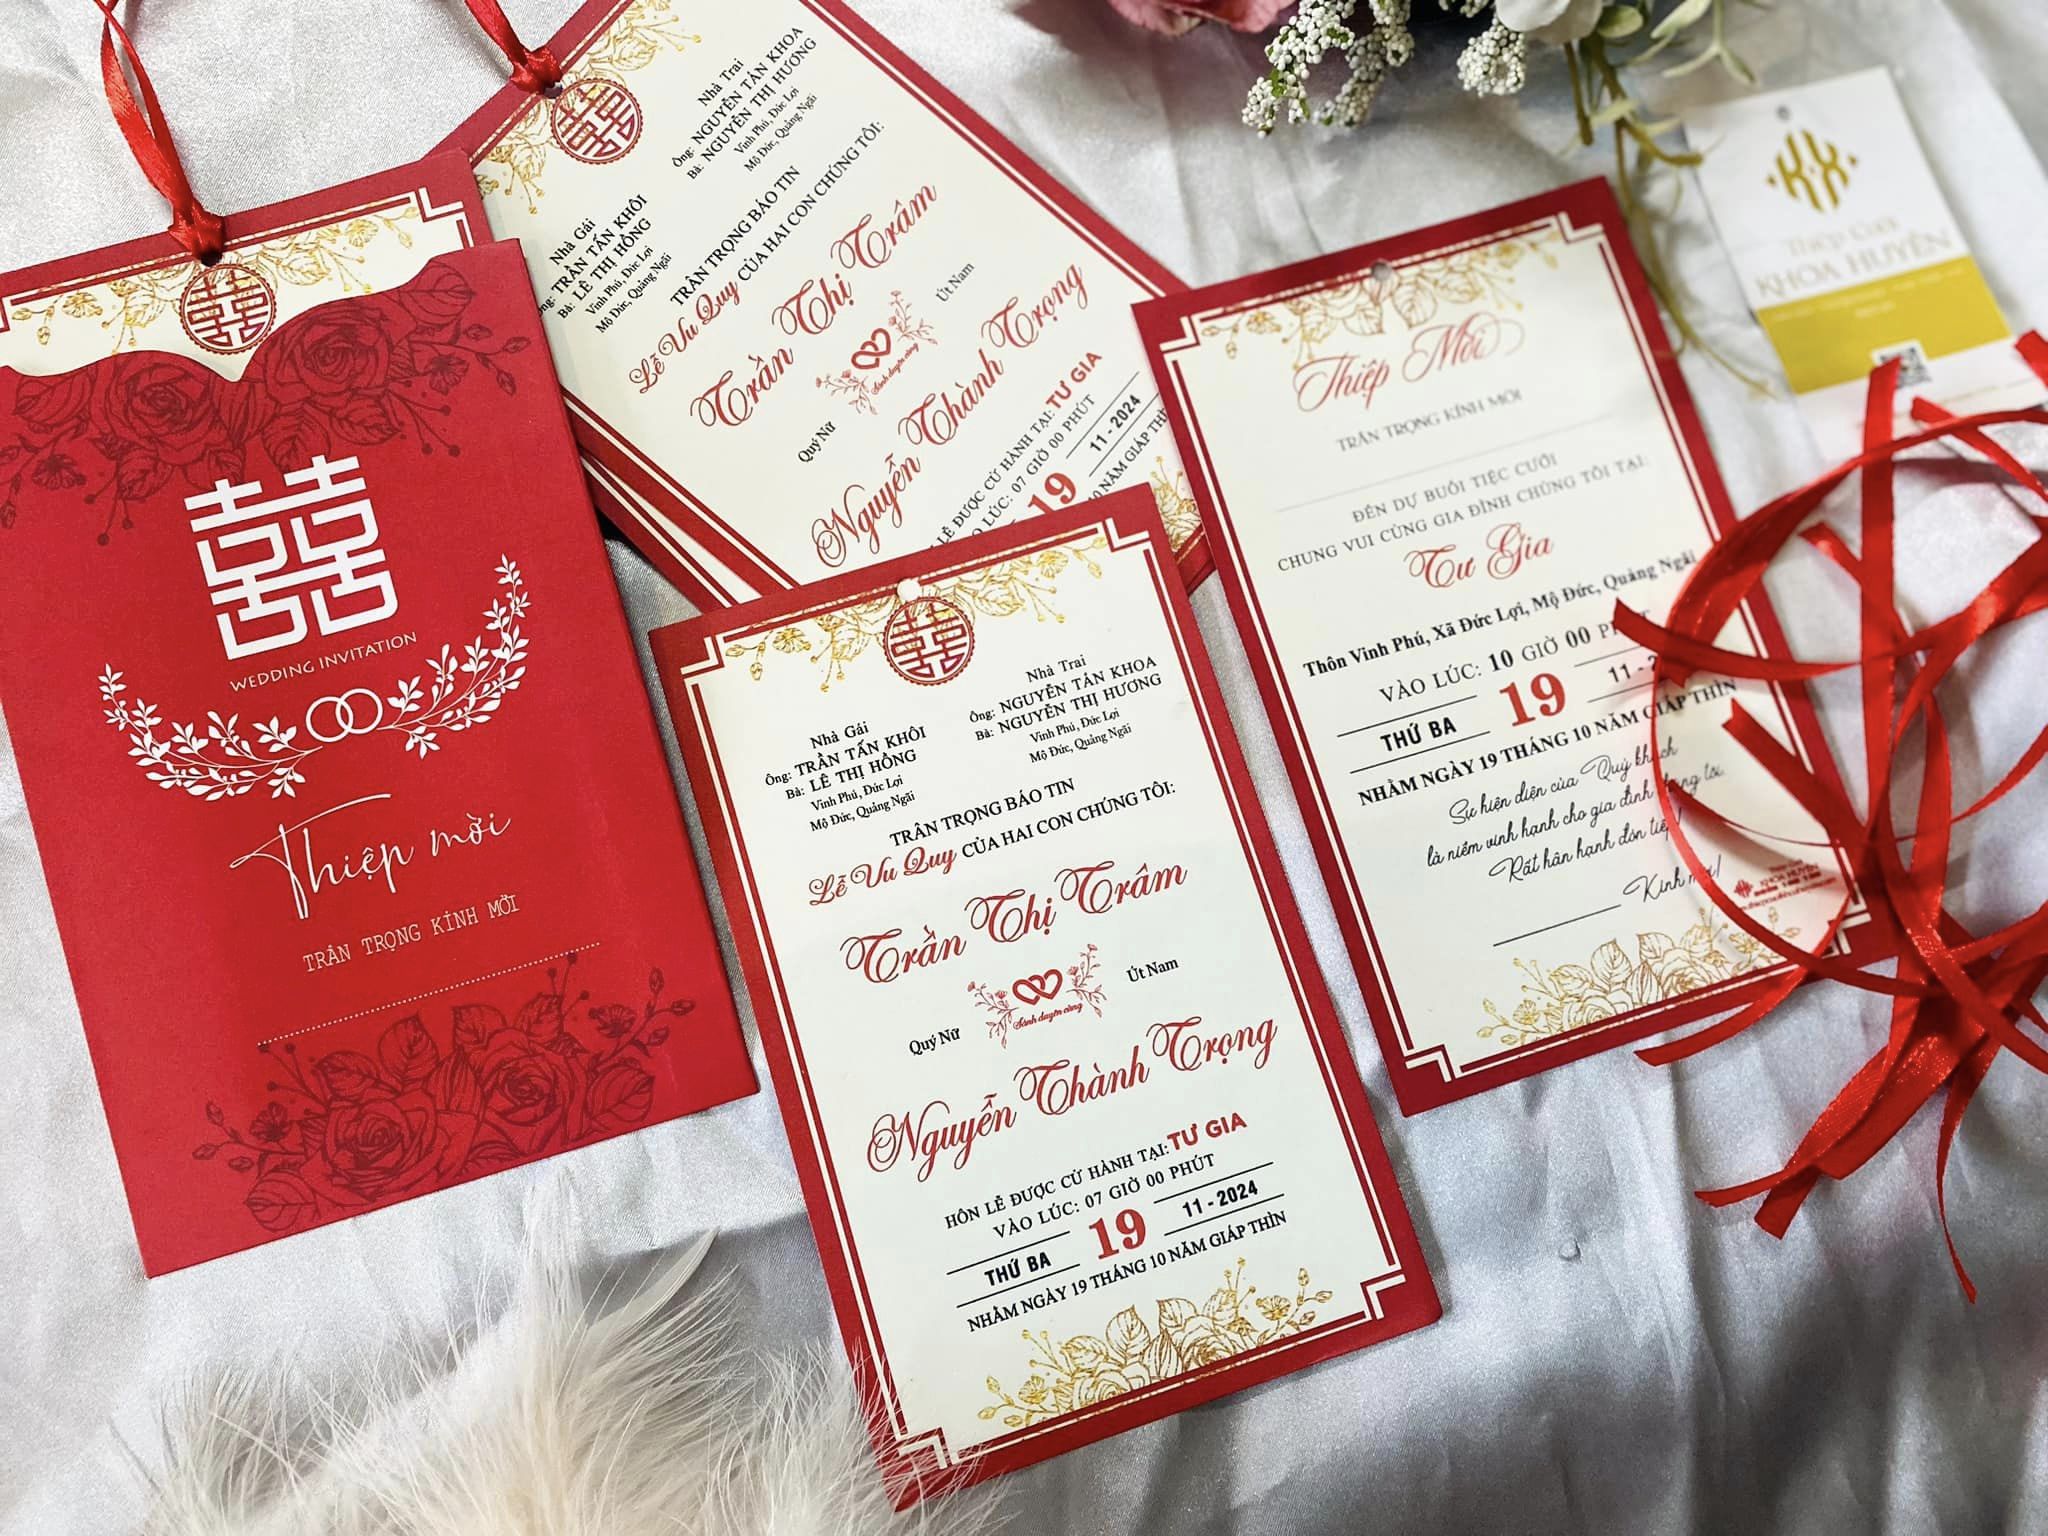 囍
WEDDING INVITATION
Thiệp mời
TRÂN TRỌNG KÍNH MỜI
Nhà Gái
Ông: TRẦN TẤN KHÔI
Bà: LÊ THỊ HỒNG
Vinh Phú, Đức Lợi
Mộ Đức, Quảng Ngãi
Nhà Trai
Ông: NGUYỄN TẤN KHOA
Bà: NGUYỄN THỊ HƯƠNG
Vinh Phú, Đức Lợi
Mộ Đức, Quảng Ngãi
TRÂN TRỌNG BÁO TIN
Lễ Vu Quy CỦA HAI CON CHÚNG TÔI:
Trần Thị Trâm
Quý Nữ
Sánh duyên cùng
Út Nam
Nguyễn Thành Trọng
LỄ ĐƯỢC CỬ HÀNH TẠI: TƯ GIA
LÚC: 07 GIỜ 00 PHÚT
19
11 - 2024
10 NĂM GIÁP
囍
Nhà Gái
Ông: TRẦN TẤN KHÔI
Bà: LÊ THỊ HỒNG
Vinh Phú, Đức Lợi
Mộ Đức, Quảng Ngãi
Nhà Trai
Ông: NGUYỄN TẤN KHOA
Bà: NGUYỄN THỊ HƯƠNG
Vinh Phú, Đức Lợi
Mộ Đức, Quảng Ngãi
TRÂN TRỌNG BÁO TIN
Lễ Vu Quy CỦA HAI CON CHÚNG TÔI:
Trần Thị Trâm
Quý Nữ
Sánh duyên cùng
Út Nam
Nguyễn Thành Trọng
HÔN LỄ ĐƯỢC CỬ HÀNH TẠI: TƯ GIA
VÀO LÚC: 07 GIỜ 00 PHÚT
THỨ BA 19 11 - 2024
NHẰM NGÀY 19 THÁNG 10 NĂM GIÁP THÌN
Thiệp Mời
TRÂN TRỌNG KÍNH MỜI
ĐẾN DỰ BUỔI TIỆC CƯỚI
CHUNG VUI CÙNG GIA ĐÌNH CHÚNG TÔI TẠI:
Tư Gia
Thôn Vinh Phú, Xã Đức Lợi, Mộ Đức, Quảng Ngãi
VÀO LÚC: 10 GIỜ 00
THỨ BA 19 11
NHẰM NGÀY 19 THÁNG 10 NĂM GIÁP THÌN
Sự hiện diện của Quý khách
là niềm vinh hạnh cho gia đình chúng tôi.
Rất hân hạnh đón tiếp!
Kính mời!
KHOA HUYỀN
KX
Thiệp Cưới
KHOA HUYỀN